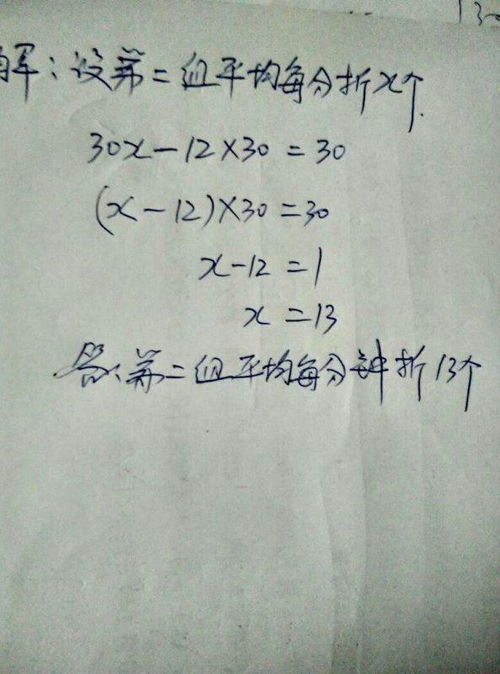 解：设第二组平均每分折x个.
30x-12×30=30
(x-12)×30=30
x-12=1
x=13
答：第二组平均每分钟折13个